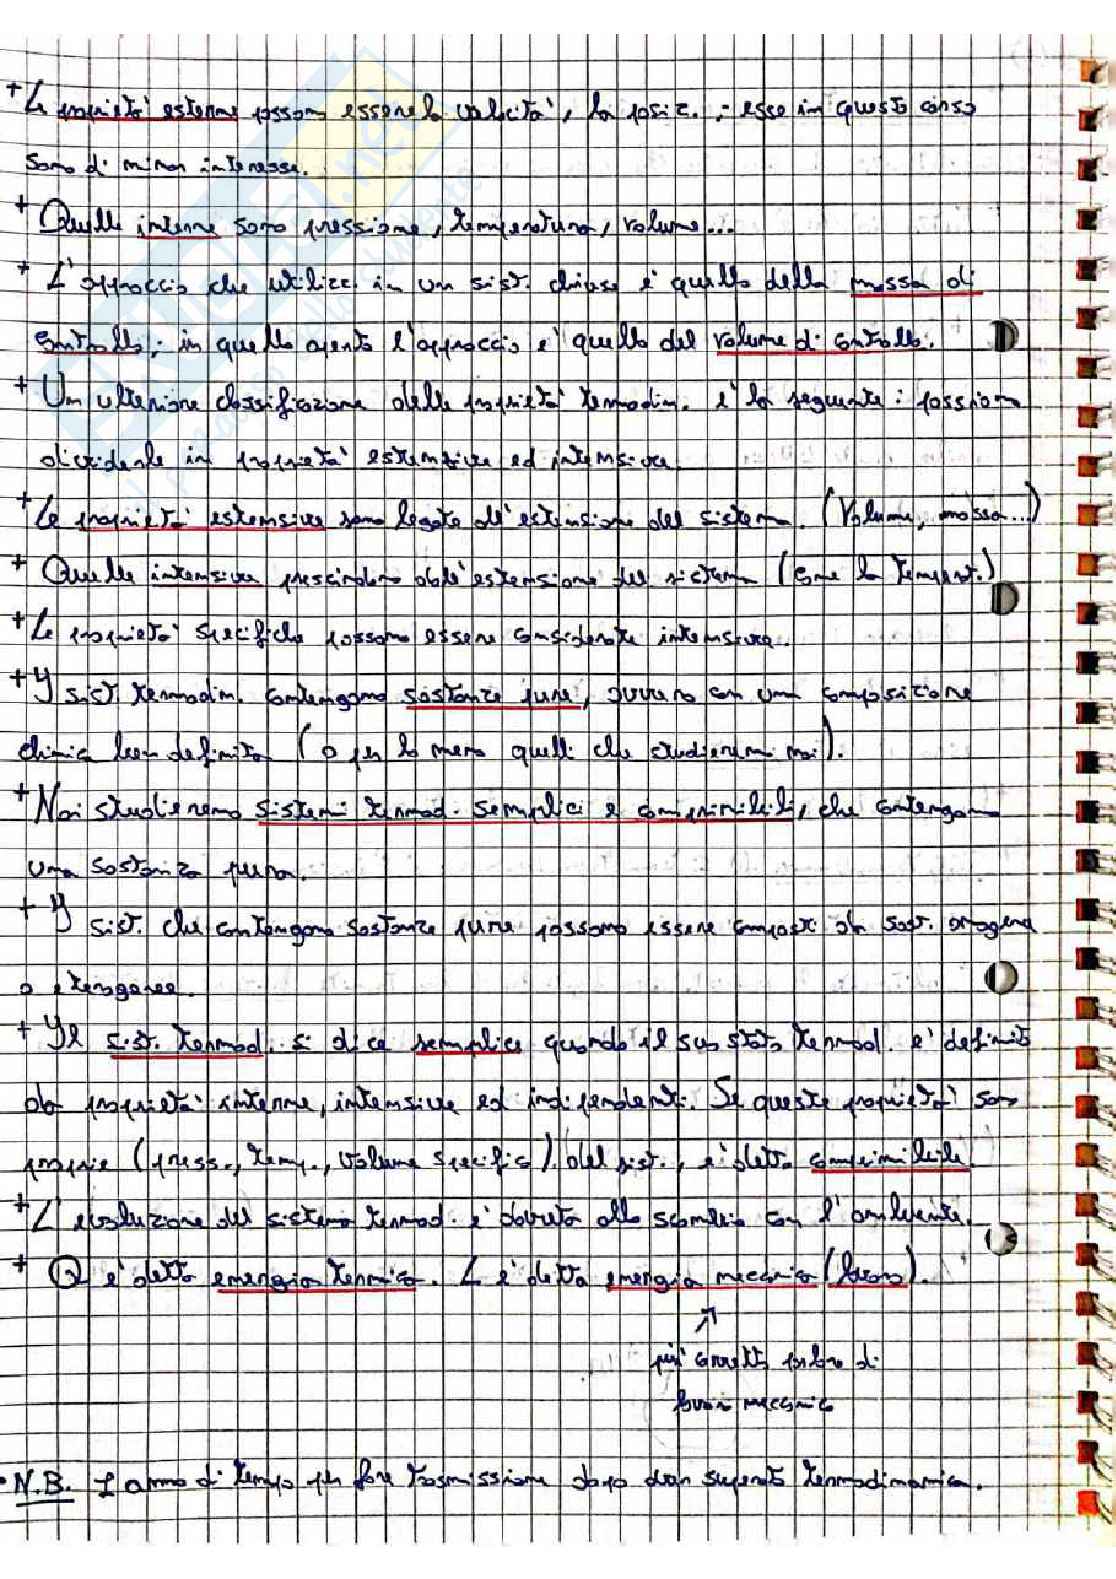 + Le proprietà esterne possono essere la velocità, la posiz. ; esse in questo corso
sono di minor interesse.
+ Quelle interne sono pressione, temperatura, volume...
+ L'approccio che utilizzi in un sist. chiuso è quello della massa di
controllo; in quello aperto l'approccio è quello del volume di controllo.
+ Un ulteriore classificazione delle proprietà termodin. è la seguente: possiamo
dividerle in proprietà estensive ed intensive.
+ Le proprietà estensive sono legate all'estensione del sistema. (Volume, massa...)
+ Quelle intensive prescindono dall'estensione del sistema (come la temperat.)
+ Le proprietà specifiche possono essere considerate intensive.
+ I sist. termodin. contengono sostanze pure, ovvero con una composizione
chimica ben definita (o per lo meno quelli che studieremo noi).
+ Noi studieremo sistemi termod. semplici e comprimibili, che contengono
una sostanza pura.
+ I sist. che contengono sostanze pure possono essere composti da sost. omogenee
o eterogenee.
+ Il sist. termod. si dice semplice quando il suo stato termod. è definito
da proprietà interne, intensive ed indipendenti. Se queste proprietà sono
proprie (press., temp., volume specifico) del sist., è detto comprimibile.
+ L'evoluzione del sistema termod. è dovuta allo scambio con l'ambiente.
+ Q è detta energia termica. L è detta energia meccanica (lavoro).
più corretto parlare di
lavoro meccanico
• N.B. 1 anno di tempo per fare trasmissione dopo aver superato termodinamica.